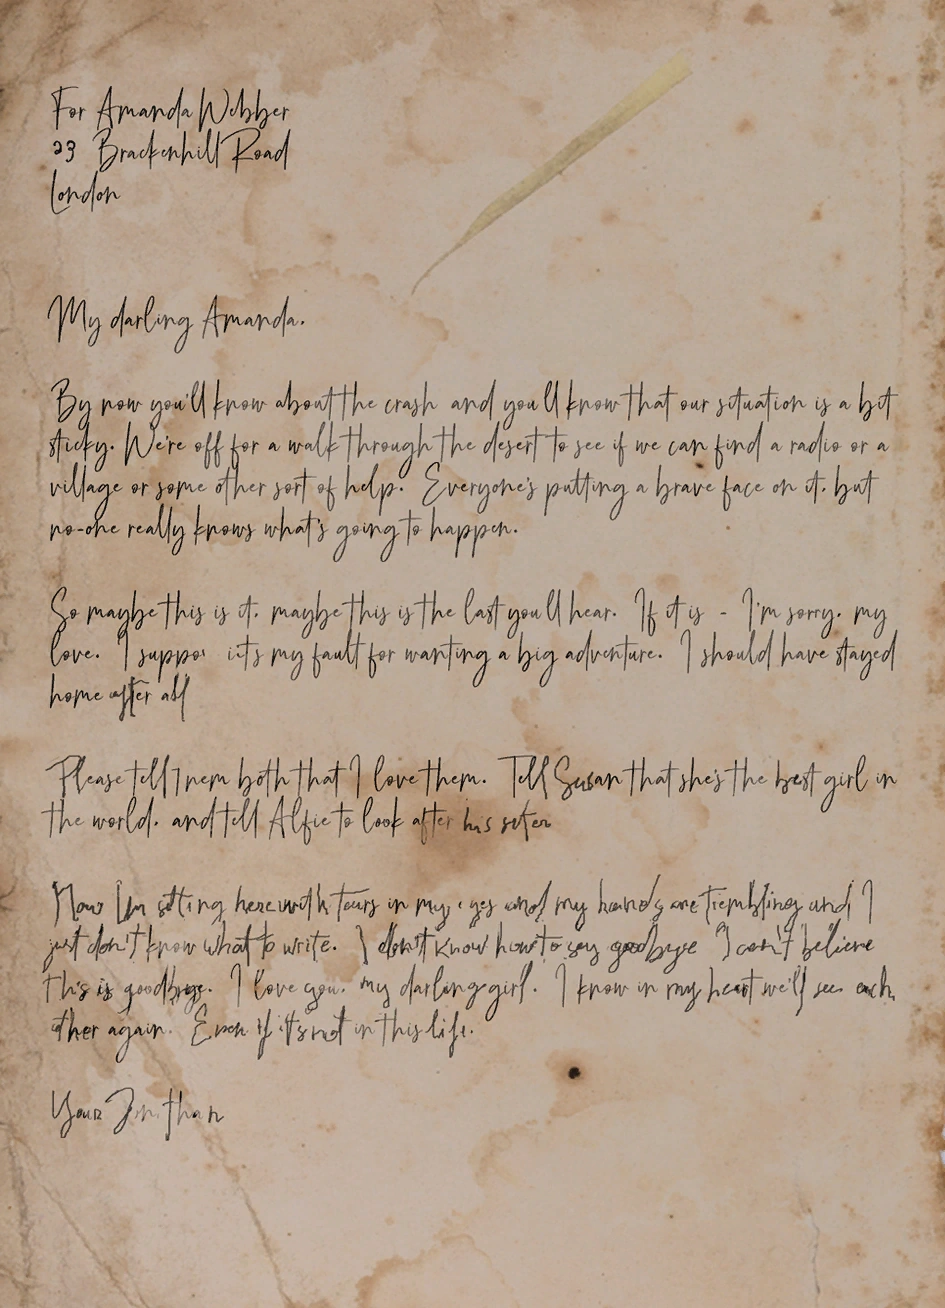 For Amanda Webber
23 Brackenhill Road
London
My darling Amanda.
By now you'll know about the crash and you'll know that our situation is a bit
sticky. We're off for a walk through the desert to see if we can find a radio or a
village or some other sort of help. Everyone's putting a brave face on it, but
no-one really knows what's going to happen.
So maybe this is it, maybe this is the last you'll hear. If it is - I'm sorry, my
love. I it's my fault for wanting a big adventure. I should have stayed
home after all
Please tell them both that I love them. Tell Susan that she's the best girl in
the world, and tell Alfie to look after his sister
Now I'm sitting here with tears in my eyes and my hands are trembling and I
just don't know what to write. I don't know how to say goodbye I can't believe
this is goodbye. I love you, my darling girl. I know in my heart we'll see each
other again. Even if it's not in this life.
Your Jonathan